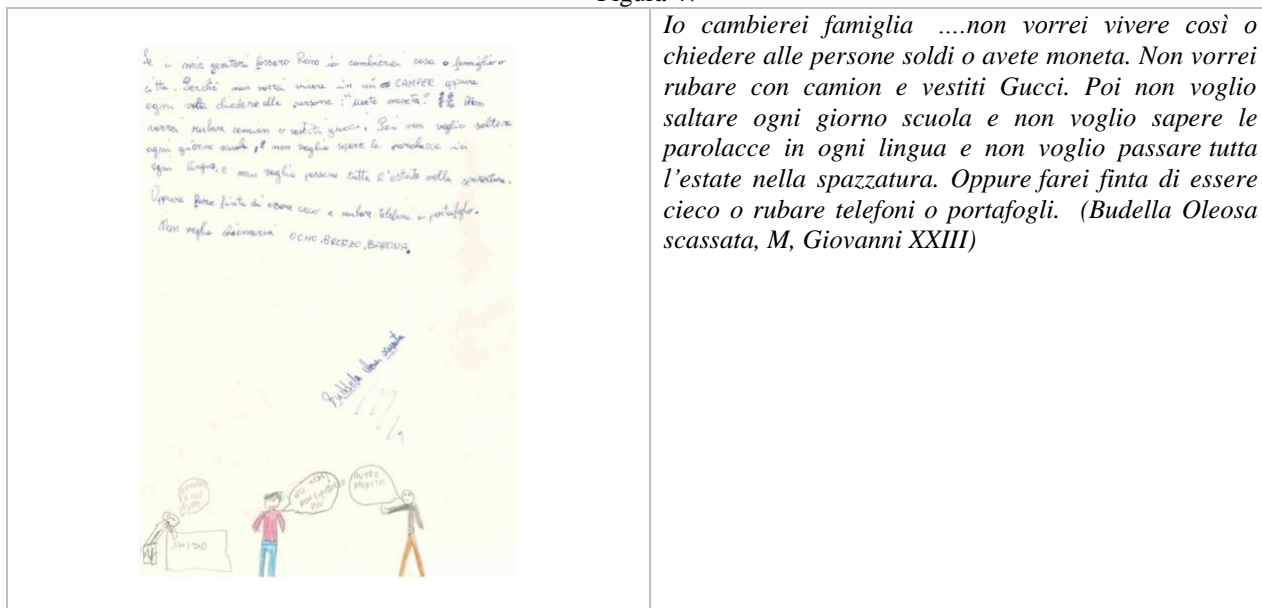 Se i miei genitori fossero Rom io cambierei casa o famiglia o
città. Perché non vorrei vivere in un CAMPER oppure
ogni volta chiedere alle persone: "avete moneta?" Non
vorrei rubare camion o vestiti gucci. Poi non voglio saltare
ogni giorno scuola, e non voglio sapere le parolacce in
ogni lingua, e non voglio passare tutta l'estate nella spazzatura.
Oppure farei finta di essere ceco e rubare telefoni o portafoglio.
Non voglio chiamarmi OCHO, BRODZO, BARONA.
Budella oleosa scassata
NO NON
NON
PIÙ
AVETE
MONETA
Io cambierei famiglia ....non vorrei vivere così o
chiedere alle persone soldi o avete moneta. Non vorrei
rubare con camion e vestiti Gucci. Poi non voglio
saltare ogni giorno scuola e non voglio sapere le
parolacce in ogni lingua e non voglio passare tutta
l'estate nella spazzatura. Oppure farei finta di essere
cieco o rubare telefoni o portafogli. (Budella Oleosa
scassata, M, Giovanni XXIII)